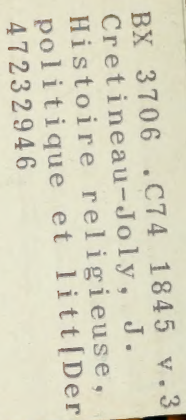 BX 3706 .C74 1845 v.3
Cretineau-Joly, J.
Histoire religieuse,
politique et litt[Der
47232946